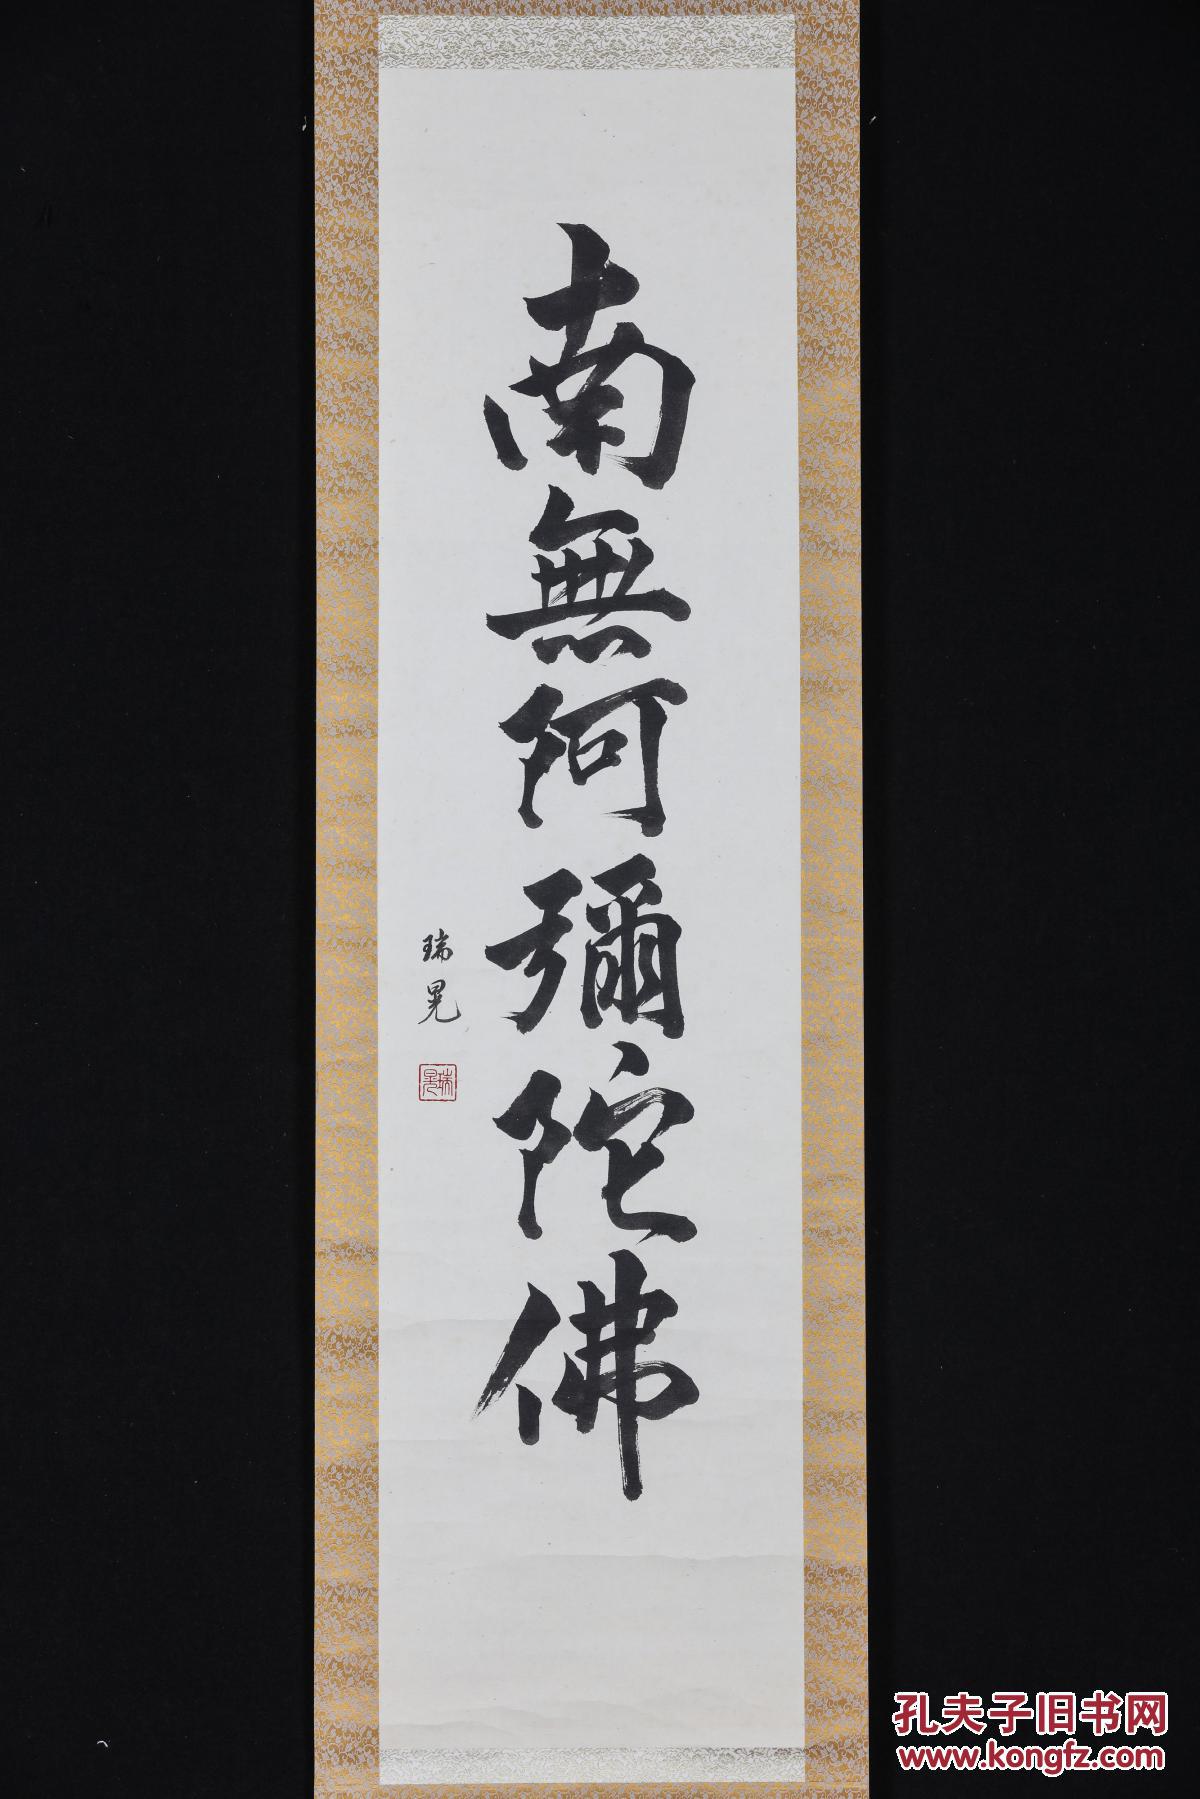 南無阿彌陀佛
瑞晃
瑞晃
孔夫子旧书网
www.kongfz.com